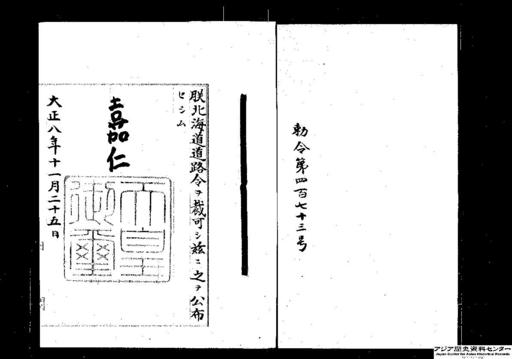 勅令第四百七十三号
朕北海道道路令ヲ裁可シ玆ニ之ヲ公布
セシム
嘉仁
天皇
御璽
大正八年十一月二十五日
アジア歴史資料センター
Japan Center for Asian Historical Records